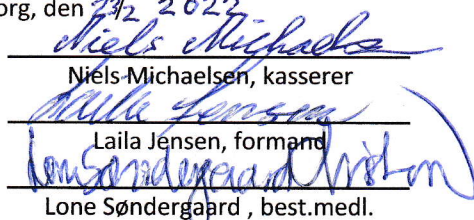 org, den 23/2 2022
Niels Michaelsen
Niels Michaelsen, kasserer
Laila Jensen
Laila Jensen, formand
Lone Søndergaard
Lone Søndergaard , best.medl.